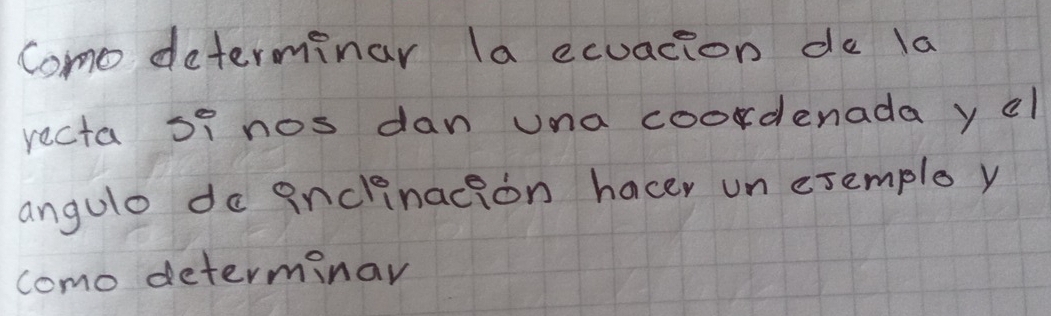 Como determinar la ecuacion de la
recta si nos dan una coordenada y el
angulo de inclinación hacer un ejemplo y
como determinar